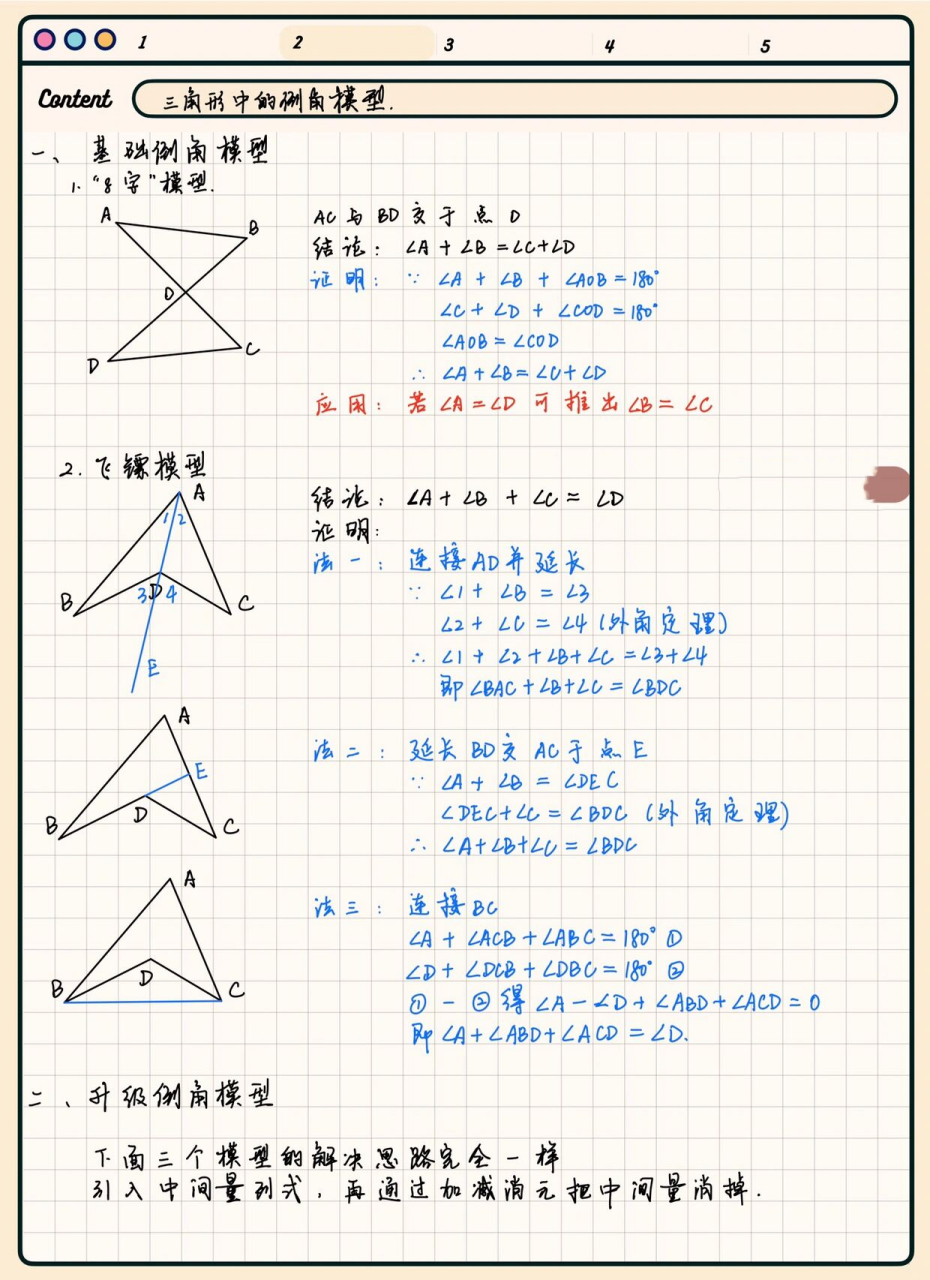 1 2 3 4 5
Content 三角形中的倒角模型.
一、基础倒角模型
1. “8字”模型.
A
B
O
D
C
AC与BD交于点O
结论: ∠A + ∠B = ∠C + ∠D
证明: ∵ ∠A + ∠B + ∠AOB = 180°
∠C + ∠D + ∠COD = 180°
∠AOB = ∠COD
∴ ∠A + ∠B = ∠C + ∠D
应用: 若∠A = ∠D 可推出∠B = ∠C
2. 飞镖模型
A
1 2
B
3 D 4
C
E
结论: ∠A + ∠B + ∠C = ∠D
证明:
法一: 连接AD并延长
∵ ∠1 + ∠B = ∠3
∠2 + ∠C = ∠4 (外角定理)
∴ ∠1 + ∠2 + ∠B + ∠C = ∠3 + ∠4
即∠BAC + ∠B + ∠C = ∠BDC
A
E
B
D
C
法二: 延长BD交AC于点E
∵ ∠A + ∠B = ∠DEC
∠DEC + ∠C = ∠BDC (外角定理)
∴ ∠A + ∠B + ∠C = ∠BDC
A
B
D
C
法三: 连接BC
∠A + ∠ACB + ∠ABC = 180° ①
∠D + ∠DCB + ∠DBC = 180° ②
① - ② 得 ∠A - ∠D + ∠ABD + ∠ACD = 0
即∠A + ∠ABD + ∠ACD = ∠D.
二、升级倒角模型
下面三个模型的解决思路完全一样
引入中间量列式, 再通过加减消元把中间量消掉.